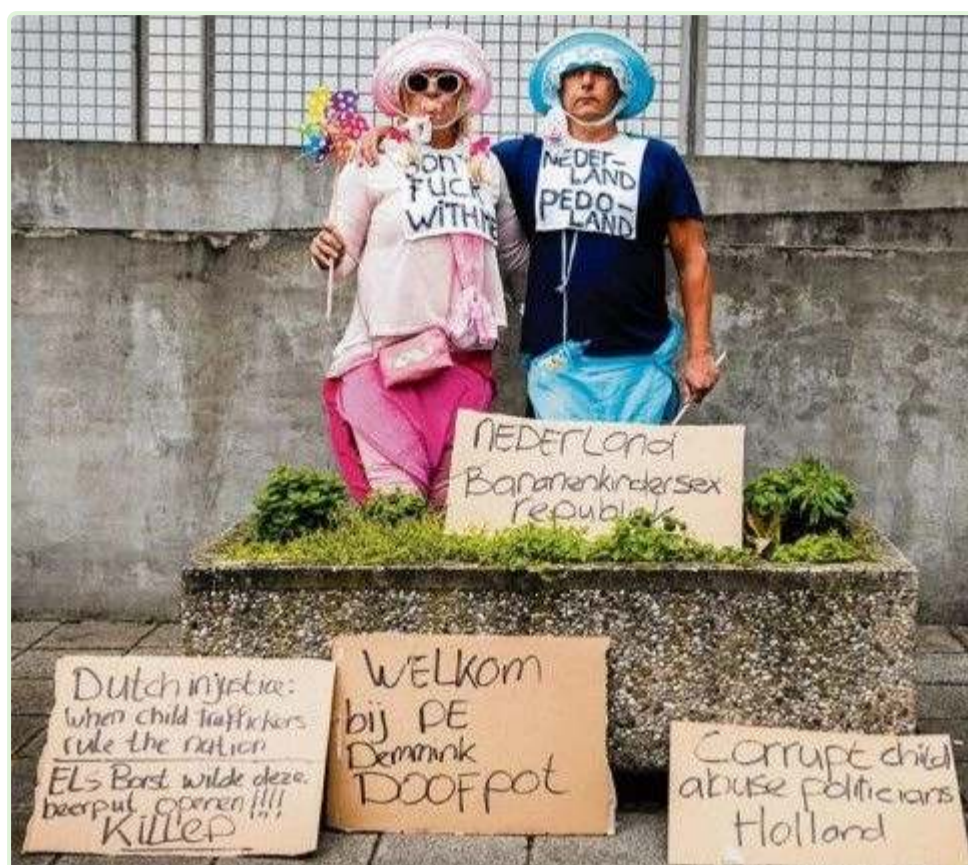 DON'T
FUCK
WITH ME
NEDER-
LAND
PEDO-
LAND
NEDERLAND
Bananenkindersex
republiek
Dutch injustice:
when child traffickers
rule the nation
ELs Borst wilde deze
beerput openen!!!!
KilleD
WELKOM
bij DE
Demmink
DOOFpot
Corrupt child
abuse politicians
Holland